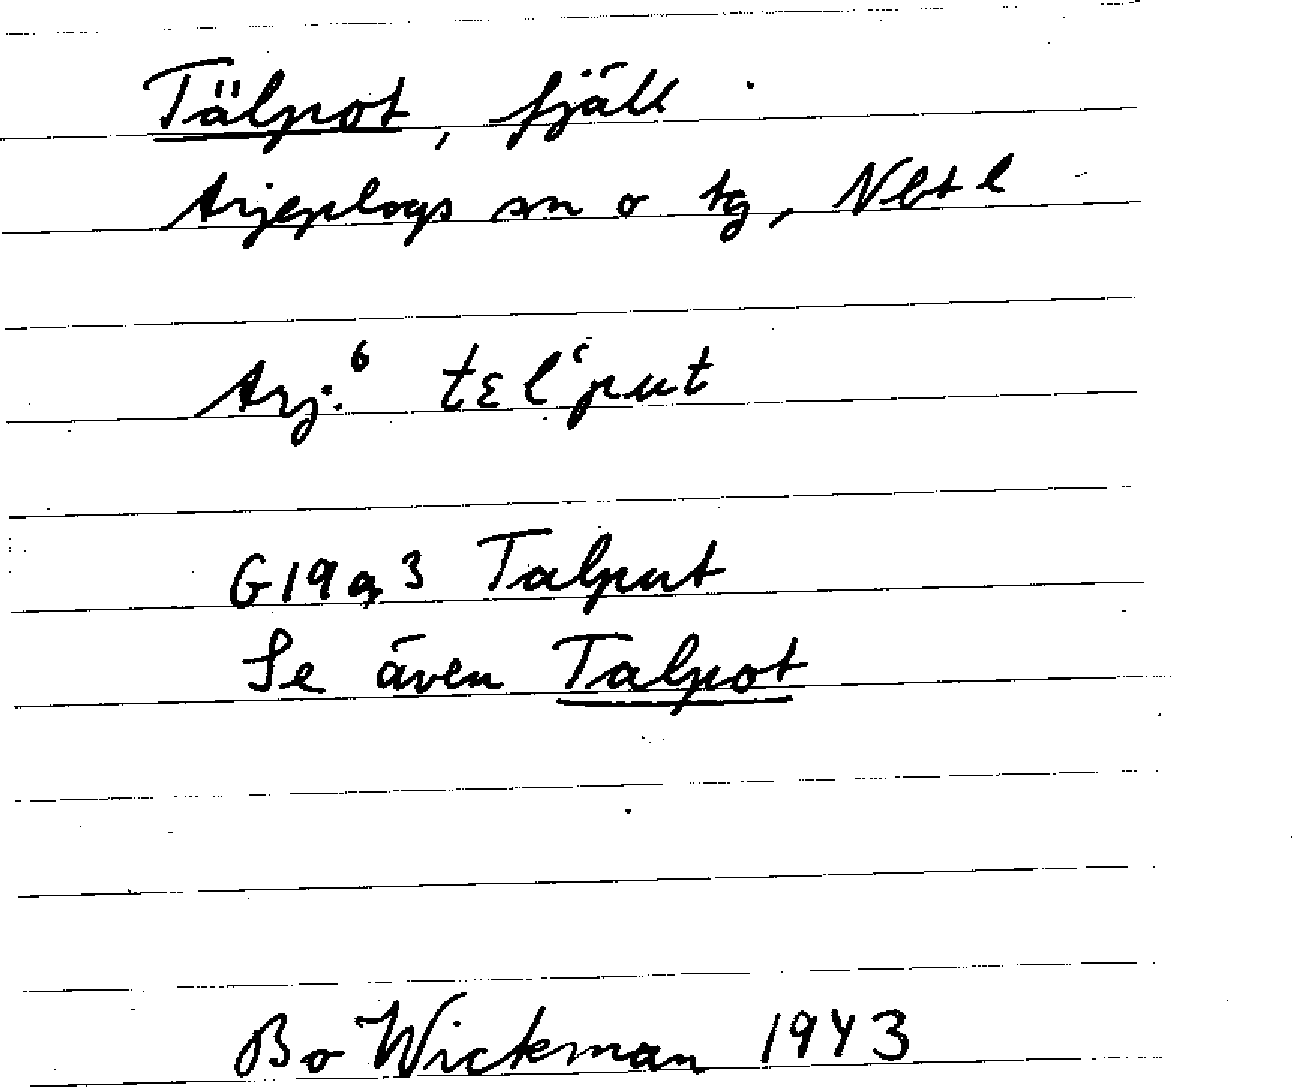 Tälpot, fjäll
Arjeplogs sn o tg, Nbt l
Arj.⁶ tɛlʻput
G19a3 Talput
Se även Talpot
Bo Wickman 1943